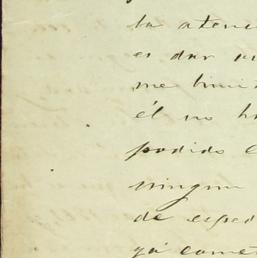 la atenc
es dar
me limi
él no h
podido
ningun
de esped
ya comet